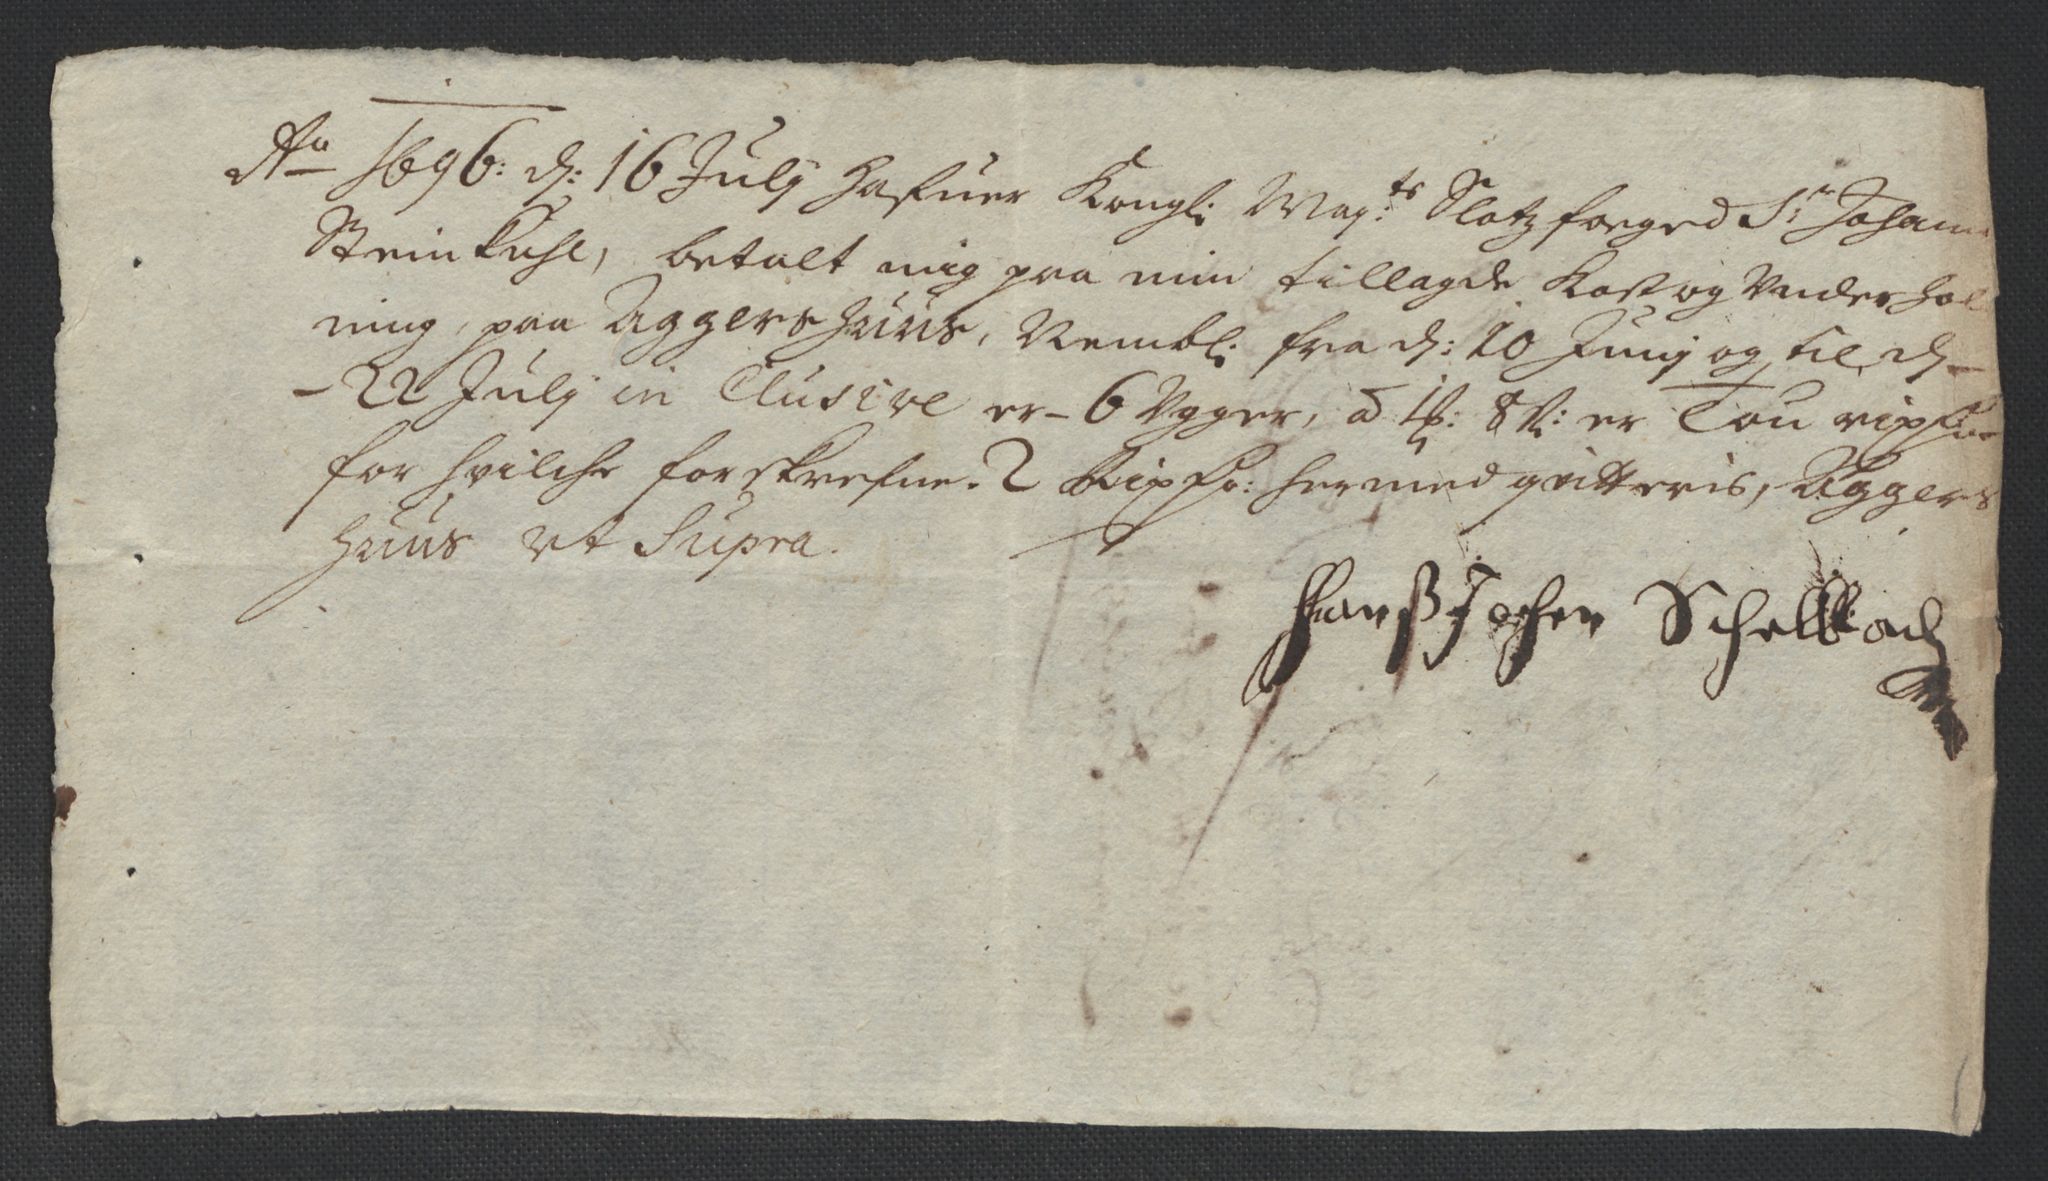 Ao 1696: d: 16 July Hafuer Kongli: May:ts Slotz foeged Sr: Johan
Steinkuhl, betalt mig paa min tillagde Kost og Underhol
ning, paa Aggershuus, Nembl: fra d: 10 Junij og til d
- 22 July in Clusive er - 6 Uger, a 1/2: 8 s: er Tou rixdr
for hvilche forskrefne 2 Rixdr: hermed qvitteris, Aggers
Huus ut Supra.
Hanß Jochen Schelbach